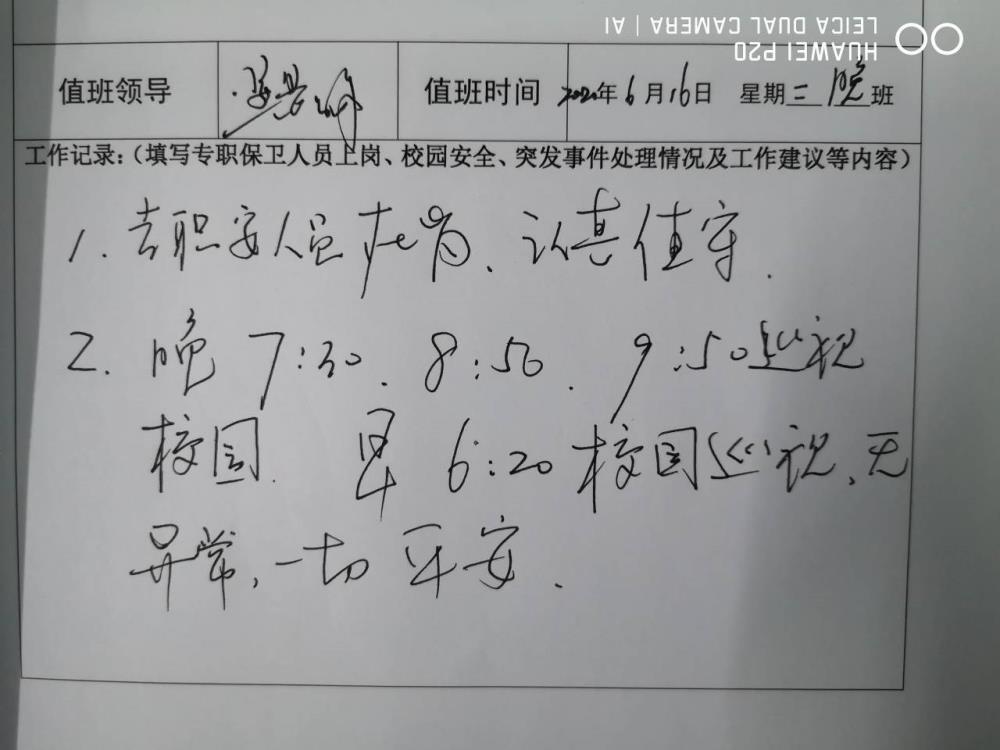 HUAWEI P20
LEICA DUAL CAMERA | AI
值班领导 值班时间 2020年6月16日 星期二晚班
工作记录：（填写专职保卫人员上岗、校园安全、突发事件处理情况及工作建议等内容）
1. 专职安人员在岗、认真值守.
2. 晚 7:30. 8:50. 9:50巡视
校园. 早 6:20校园巡视、无
异常, 一切平安.